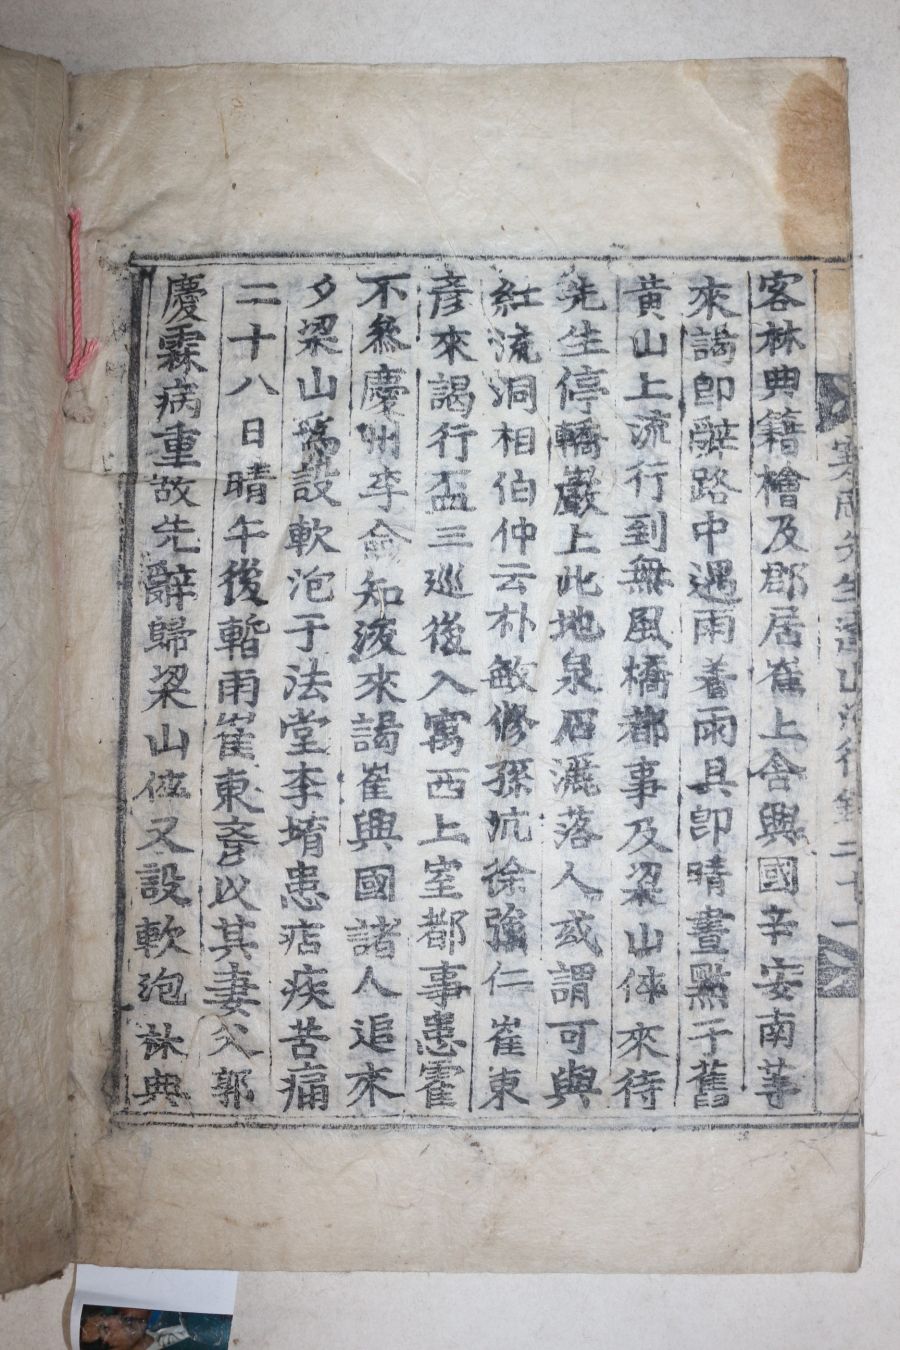 客林典籍檜及郡居崔上舍興國辛安南等
來謁卽辭路中遇雨着雨具卽晴晝點于舊
黃山上流行到無風橋都事及梁山倅來待
先生停轎巖上此地泉石灑落人或謂可與
紅流洞相伯仲云朴敏修孫沆徐強仁崔東
彦來謁行盃三巡後入寓西上室都事患霍
不叅慶州李㑒知涘來謁崔興國諸人追來
夕梁山爲設軟泡于法堂李堉患店疾苦痛
二十八日晴午後暫雨崔東彦以其妻父郭
慶霖病重故先辭歸梁山倅又設軟泡林典
寒岡先生蓬山浴行錄 二十一